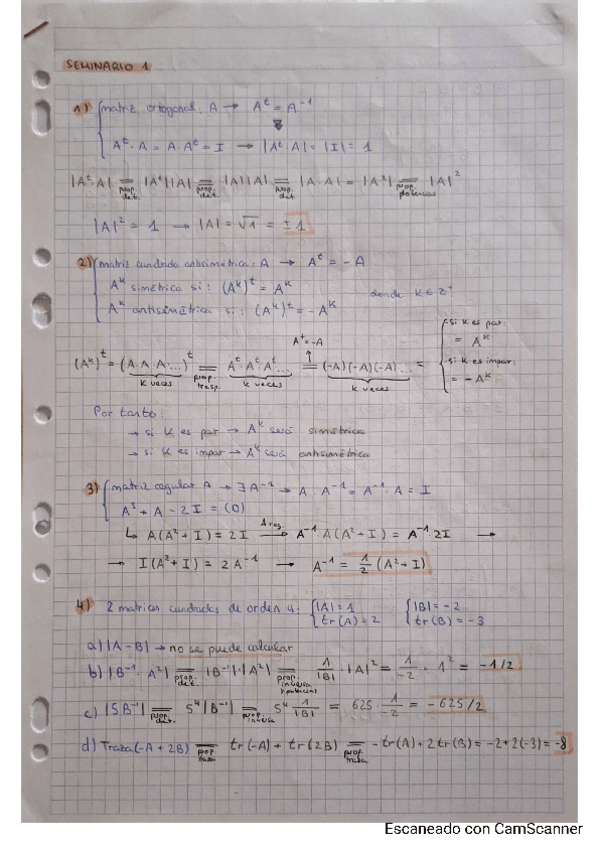 SEMINARIO 1
1) matriz ortogonal: A → Aᵗ = A⁻¹
Aᵗ · A = A · Aᵗ = I → |Aᵗ · A| = |I| = 1
|Aᵗ · A| = (prop. det.) |Aᵗ||A| = (prop. det.) |A||A| = (prop. det.) |A · A| = |A²| = (prop. potencias) |A|²
|A|² = 1 → |A| = √1 = ± 1
2) matriz cuadrada antisimétrica: A → Aᵗ = - A
Aᴷ simétrica si: (Aᴷ)ᵗ = Aᴷ donde K ∈ Z⁺
Aᴷ antisimétrica si: (Aᴷ)ᵗ = - Aᴷ
Aᵗ = -A
si K es par:
= Aᴷ
(Aᴷ)ᵗ = (A·A·A·...)ᵗ = (prop. trasp.) Aᵗ·Aᵗ·Aᵗ... = (-A)(-A)(-A)... =
K veces K veces K veces
si K es impar:
= - Aᴷ
Por tanto:
→ si K es par → Aᴷ será simétrica
→ si K es impar → Aᴷ será antisimétrica
3) matriz regular A → ∃ A⁻¹ → A · A⁻¹ = A⁻¹ · A = I
A³ + A - 2I = (0)
↳ A(A² + I) = 2I →(A reg.) A⁻¹ · A(A² + I) = A⁻¹ · 2I →
→ I(A² + I) = 2A⁻¹ → A⁻¹ = 1/2 (A² + I)
4) 2 matrices cuadradas de orden 4: |A| = 1 |B| = -2
tr(A) = 2 tr(B) = -3
a) |A - B| → no se puede calcular
b) |B⁻¹ · A²| = (prop. det.) |B⁻¹|·|A²| = (prop. inversa y potencias) 1/|B| · |A|² = 1/-2 · 1² = -1/2
c) |5B⁻¹| = (prop. det.) 5⁴|B⁻¹| = (prop. inversa) 5⁴ 1/|B| = 625 · 1/-2 = -625/2
d) Traza(-A + 2B) = (prop. traza) tr(-A) + tr(2B) = (prop. traza) -tr(A) + 2tr(B) = -2 + 2(-3) = -8
Escaneado con CamScanner